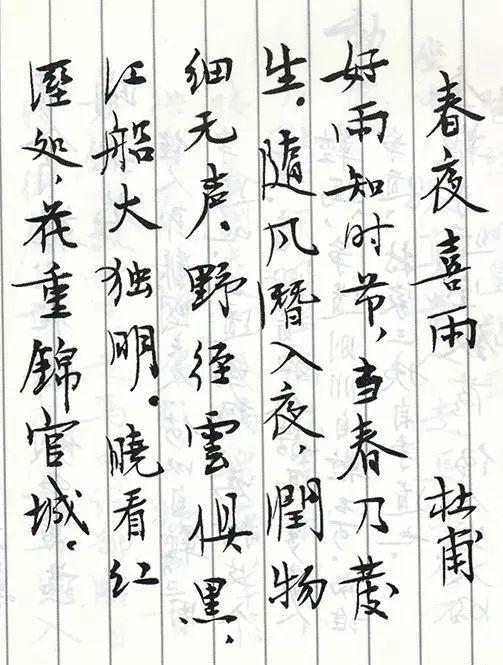 春夜喜雨 杜甫
好雨知时节,当春乃發
生。随风潛入夜,潤物
细无声。野径雲俱黑,
江船大独明。曉看红
溼处,花重錦官城。